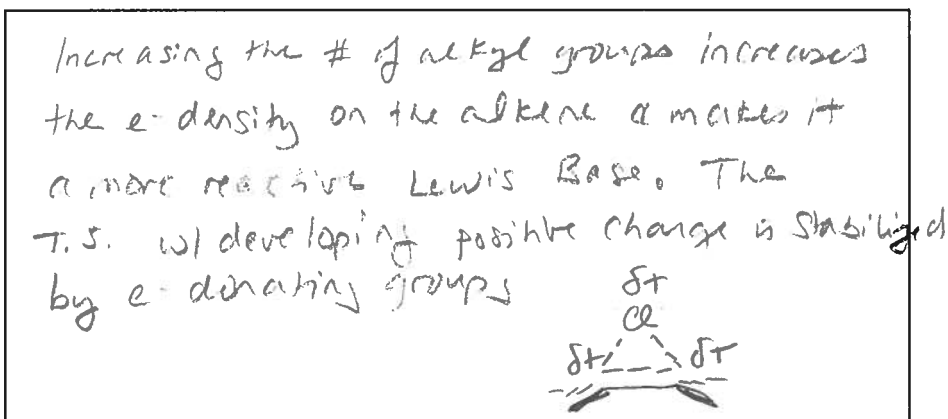 Increasing the # of alkyl groups increases
the e- density on the alkene & makes it
a more reactive Lewis Base. The
T.S. w/ developing positive charge is stabilized
by e- donating groups
δ+
Cl
δ+ δ+